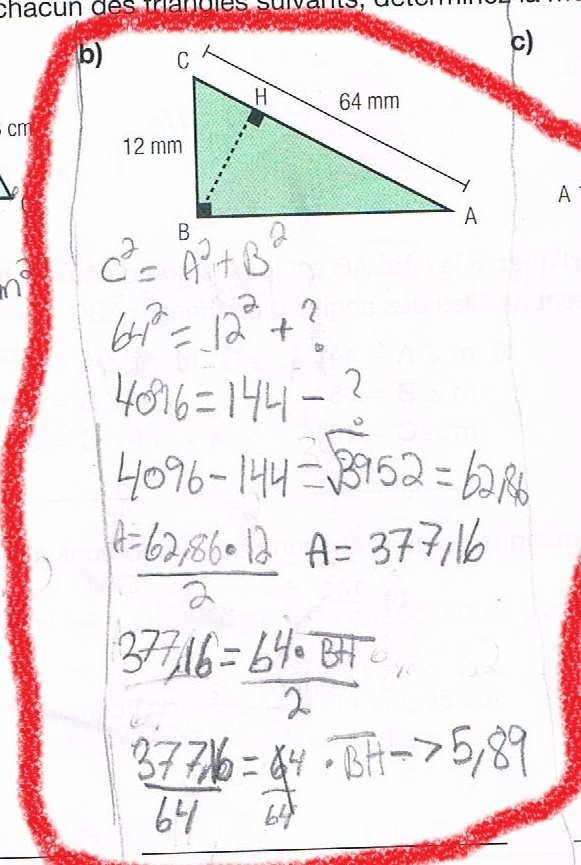 chacun des triangles suivants, déterminez la
b)
c)
C
H
64 mm
12 mm
cm
A
B
A
C² = A² + B²
64² = 12² + ?
4096 = 144 - ?
4096 - 144 = √3952 = 62,86
A = 62,86 • 12 / 2 A = 377,16
377,16 = 64 • BH / 2
377,16 / 64 = 64 / 64 • BH -> 5,89